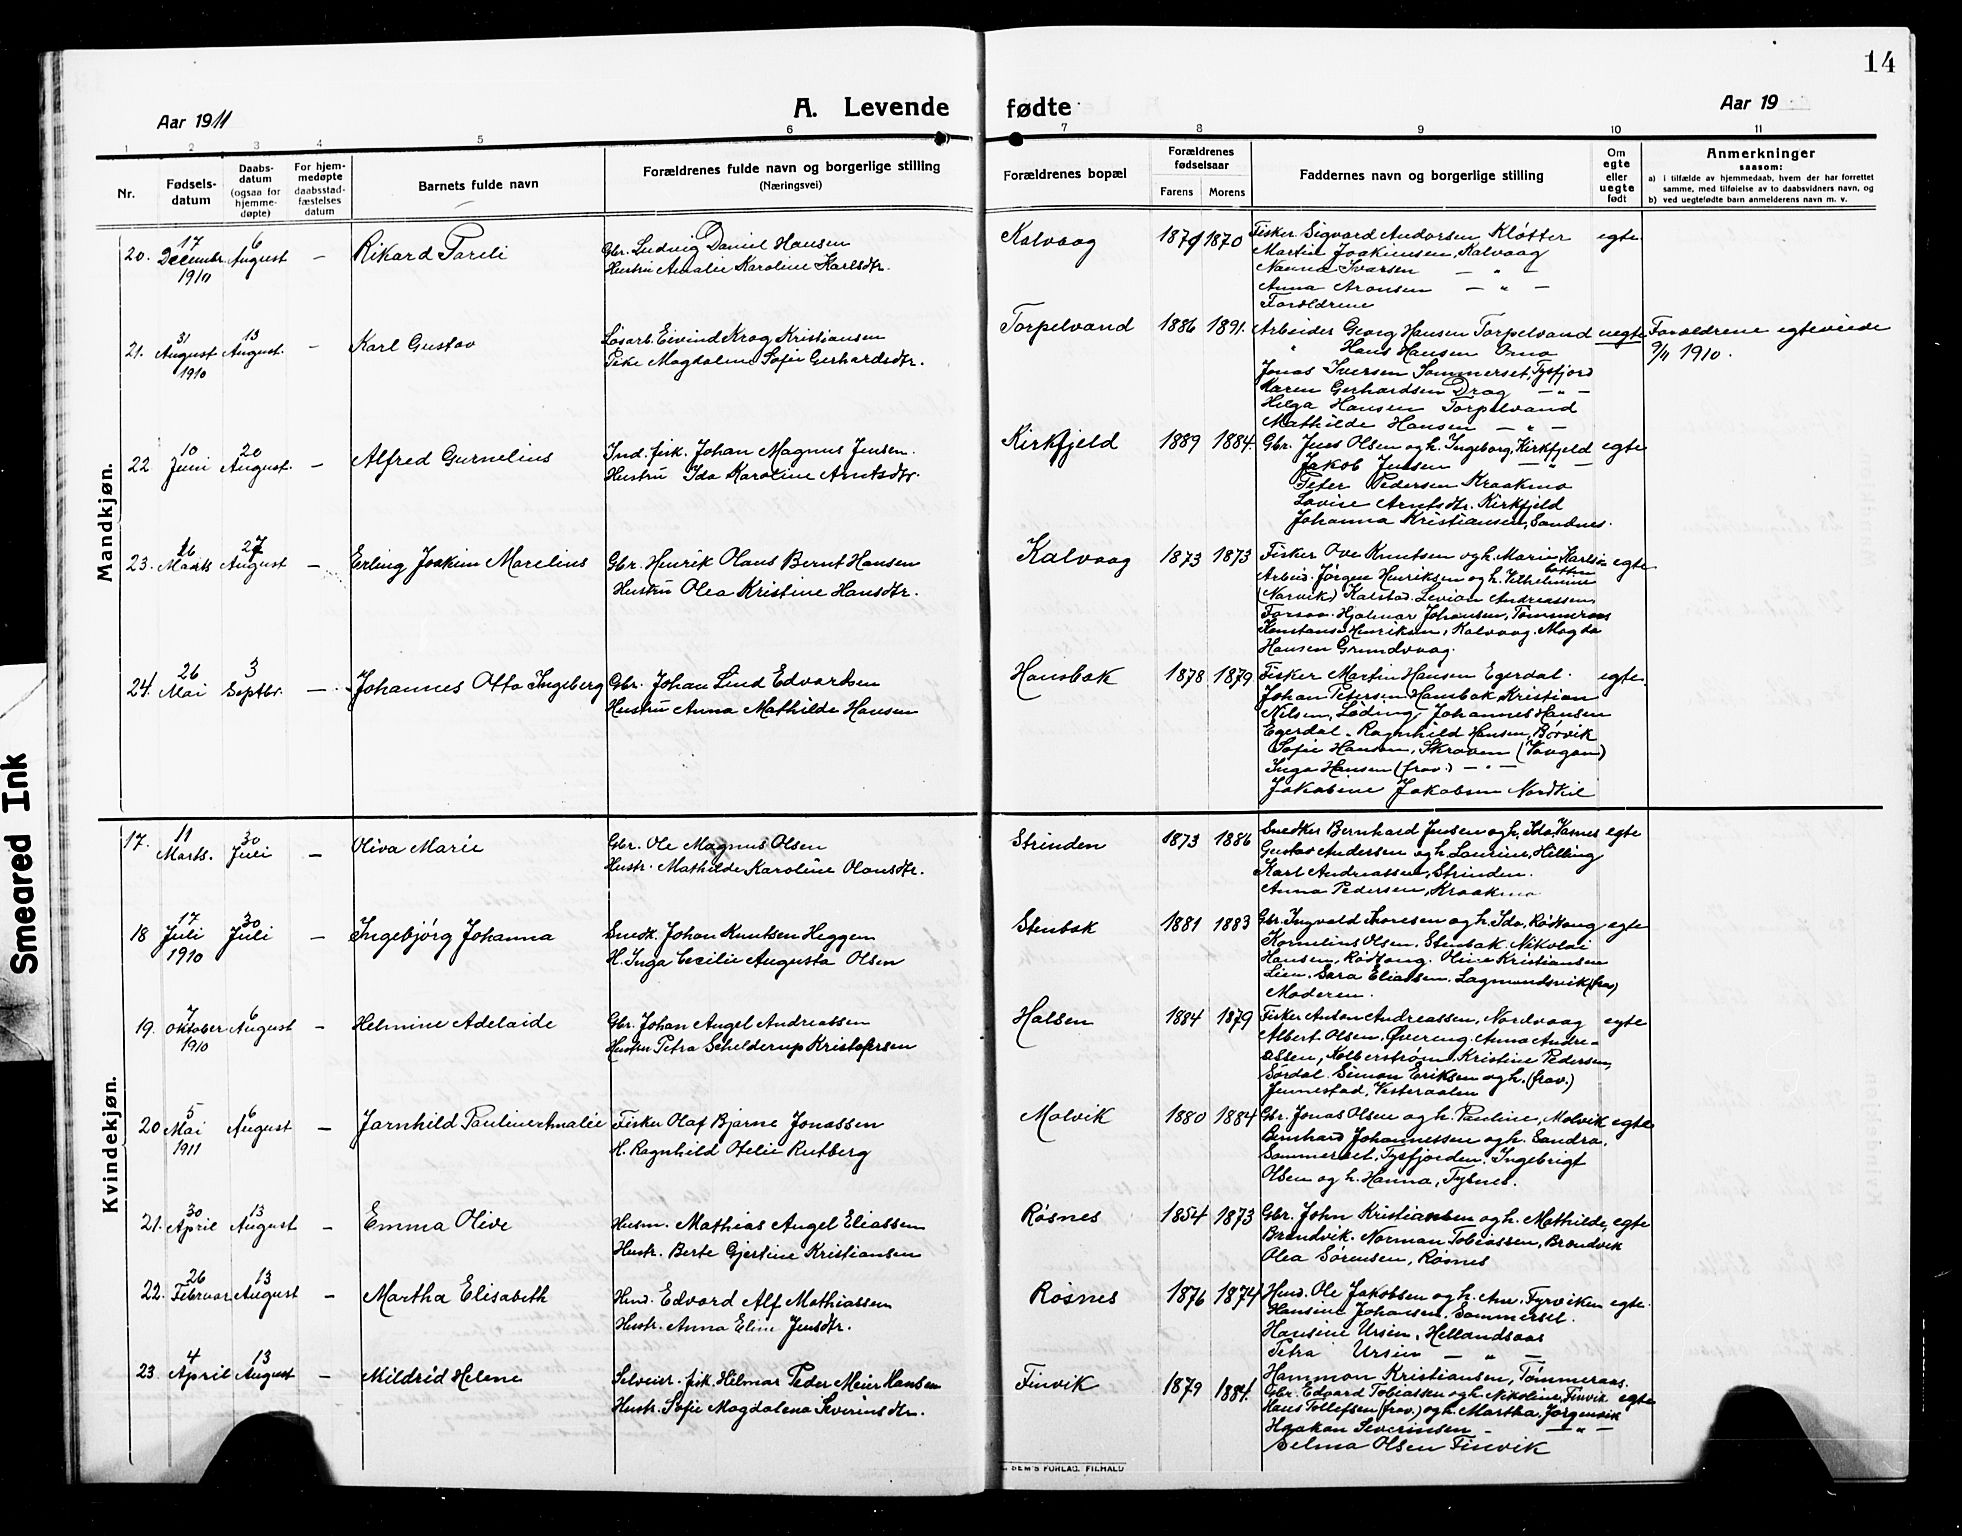 14
Aar 1911
A. Levende fødte
Aar 19
1 2 3 4 5 6 7 8 9 10 11
Nr.
Fødsels-
datum
Daabs-
datum
(ogsaa for
hjemme-
døpte)
For hjem-
medøpte
daabsstad-
fæstelses
datum
Barnets fulde navn
Forældrenes fulde navn og borgerlige stilling
(Næringsvei)
Forældrenes bopæl
Forældrenes
fødselsaar
Farens Morens
Faddernes navn og borgerlige stilling
Om
egte
eller
uegte
født
Anmerkninger
saasom:
a) i tilfælde av hjemmedaab, hvem der har forrettet
samme, med tilføielse av to daabsvidners navn, og
b) ved uegtefødte barn anmelderens navn m. v.
Mandkjøn.
20. 17 Decembr. 1910 6 August – Rikard Pareli
Gbr. Ludvig Daniel Hansen
Hustru Amalie Karoline Karlsdtr.
Kalvaag 1879 1870
Fisker Sigvard Andorsen Kløtter egte
Martin Joakimsen, Kalvaag
Nanna Ivarsen — " —
Anna Aronsen — " —
Forældrene
21. 31 August 1910 13 August. – Karl Gustav
Løsarb. Eivind Krog Kristiansen
Pike Magdalena Sofie Gerhardsdtr.
Torpelvand 1886 1891.
Arbeider Georg Hansen Torpelvand uegte
" Hans Hansen
Jonas Iversen Sommerset, Tysfjord
Karen Gerhardsen Drag — " —
Helga Hansen Torpelvand
Mathilde Hansen — " —
Forældrene egteviede
9/11 1910.
22 10 Juni 20 August. – Alfred Gurnelius
Ind. fisk. Johan Magnus Jensen.
Hustru Ida Karoline Arntsdtr.
Kirkfjeld 1889 1884.
Gbr. Jens Olsen og h. Ingeborg, Kirkfjeld egte
Jakob Jensen — " —
Peter Pedersen Kraakmo
Lovise Arntsdtr. Kirkfjeld
Johanna Kristiansen, Sandnes.
23. 16 Marts 27 August – Erling Joakim Marelius
Gbr. Henrik Olaus Bernt Hansen
Hustru Olea Kristine Hansdtr.
Kalvaag 1873 1873
Fisker Ove Knutsen og h. Marie, Karlsø egte
Arbeid. Jørgen Henriksen og h. Vilhelmine
(Narvik) Kalstad. Levion Andreassen,
Forsaa. Hjalmar Johansen, Tømmeraas
Konstanse Henriksen, Kalvaag. Magda
Hansen Grundvaag.
24. 26 Mai 3 Septbr. – Johannes Otto Ingeberg
Gbr. Johan Lind Edvardsen
Hustru Anna Mathilde Hansen
Hansbak 1878 1879
Fisker Martin Hansen Egerdal. egte.
Johan Petersen Hansbak, Kristian
Nilsen, Løding. Johannes Hansen
Egerdal. Ragnhild Hansen, Børvik
Sofie Hansen, Skroven (Vaagan)
Inga Hansen (frav.) — " —
Jakobine Jakobsen Nordkil
Kvindekjøn.
17. 11 Marts. 30 Juli – Oliva Marie
Gbr. Ole Magnus Olsen
Hustr. Mathilde Karoline Olausdtr.
Strinden 1873 1886
Snedker Bernhard Jensen og h. Ida, Vasnes egte
Gustav Andersen og h. Laurine, Helling
Karl Andreassen, Strinden.
Anna Pedersen, Kraakmo
18 17 Juli 1910 30 Juli – Ingebjørg Johanna
Snedk. Johan Knutsen Heggen
H. Inga Cecilie Augusta Olsen
Stenbak 1881 1883
Gbr. Ingvald Thoresen og h. Ida, Rødtang egte
Kornelius Olsen, Stenbak. Nikolai
Hansen, Rødtang. Oline Kristiansen
Lien. Sara Eliassen. Lagmandsvik (frav)
Moderen.
19. 7 Oktober 1910 6 August – Helmine Adelaide
Gbr. Johan Angel Andreassen
Hustru Petra Schelderup Kristofersen
Halsen 1884 1879
Fisker Anton Andreassen, Nordvaag egte
Albert Olsen, Øvereng. Anna Andre-
assen, Kolberstrøm. Kristine Pedersen,
Sørdal. Simon Eriksen og h. (frav.)
Jennestad, Vesteraalen
20 5 Mai 1911 6 August – Jarnhild Pauline Amalie
Fisker Olaf Bjarne Jonassen
H. Ragnhild Otelie Rutberg
Molvik 1880 1884
Gbr. Jonas Olsen og h. Pauline, Molvik egte
Bernhard Johannessen og h. Sandra,
Sommerset, Tysfjorden. Ingebrigt
Olsen og h. Hanna, Tysnes.
21. 30 April 13 August – Emma Olive
Husm. Mathias Angel Eliassen
Hustr. Berte Gjertine Kristiansen
Røsnes 1854 1873
Gbr. John Kristiansen og h. Mathilde, egte
Brendvik. Norman Tobiassen, Brendvik
Olea Sørensen, Røsnes
22. 26 Februar 13 August – Martha Elisabeth
Hmd. Edvard Alf Mathiassen
Hustr. Anna Eline Jensdtr.
Røsnes 1876 1874
Hmd. Ole Jakobsen og h. Ane. Fyrviken egte.
Hansine Johansen, Sommerset.
Hansine Ursin, Hellandsaar
Petra Ursin — " —
Hammon Kristiansen, Tømmeraas.
23. 4 April 13 August – Mildrid Helene
Selveier. fisk. Hilmar Peder Meier Hansen
Hustr. Sofie Magdalena Severinsdtr.
Finvik 1879 1884.
Gbr. Edvard Tobiassen og h. Nikoline, Finvik egte
Hans Tollefsen (frav.) og h. Martha, Jørgensvik
Haakon Severinsen — " —
Selma Olsen Finvik
SEM'S FORLAG, F.HALD
Smeared Ink